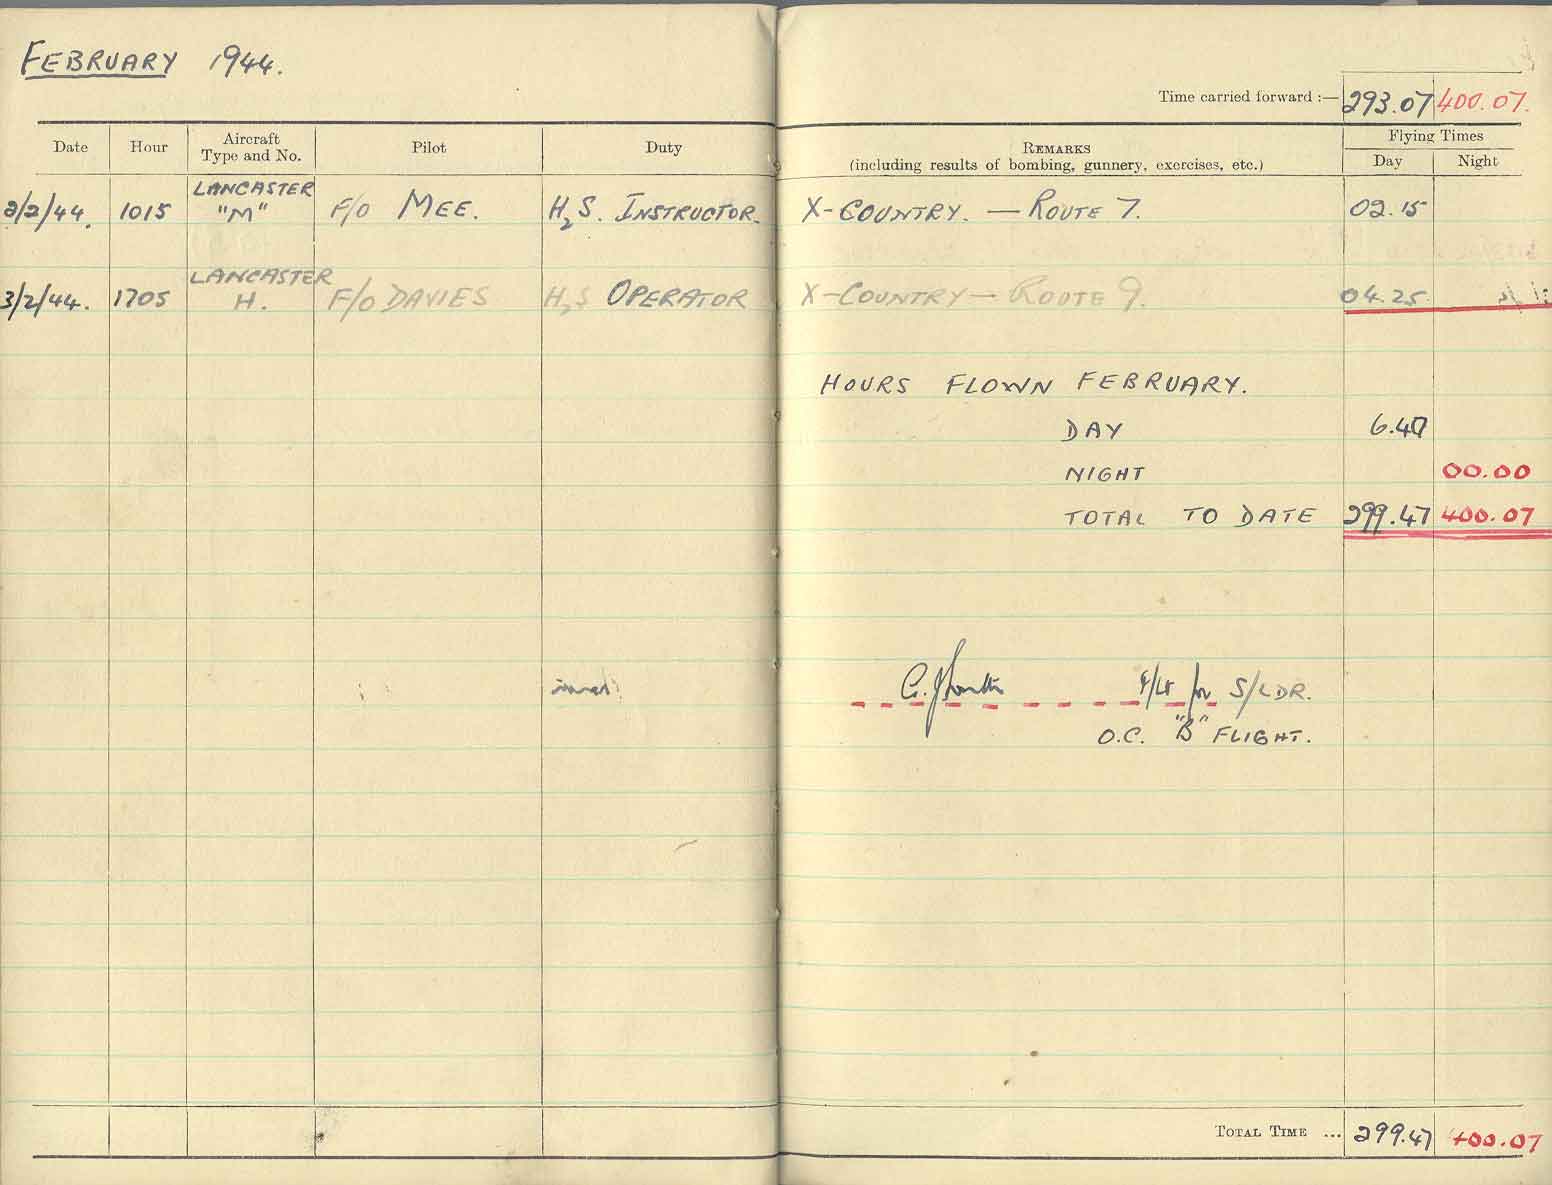 FEBRUARY 1944.
Time carried forward :— 293.07 400.07.
Date Hour Aircraft Type and No. Pilot Duty REMARKS (including results of bombing, gunnery, exercises, etc.) Flying Times Day Night
2/2/44. 1015 LANCASTER "M" F/O MEE. H2S. INSTRUCTOR. X-COUNTRY. — ROUTE 7. 02.15
3/2/44. 1705 LANCASTER H. F/O DAVIES H2S OPERATOR X-COUNTRY — ROUTE 9. 04.25
HOURS FLOWN FEBRUARY.
DAY 6.40
NIGHT 00.00
TOTAL TO DATE 299.47 400.07
F/Lt for S/LDR.
O.C. "B" FLIGHT.
TOTAL TIME ... 299.47 400.07